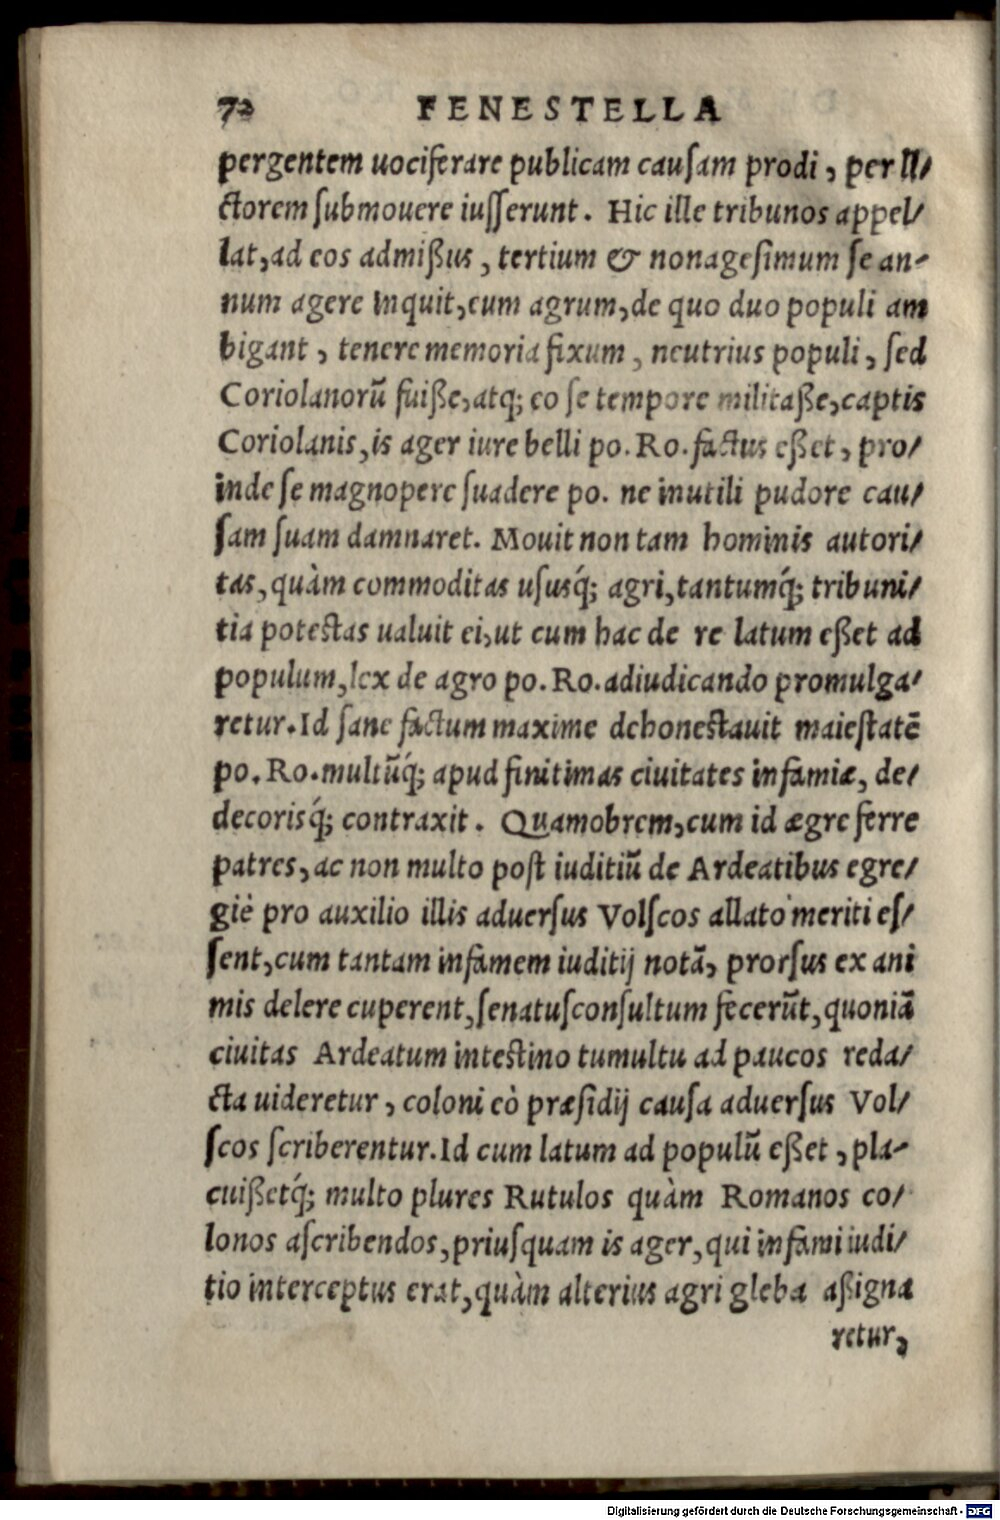 72 FENESTELLA
pergentem uociferare publicam cauſam prodi, per li/
ctorem ſubmouere iuſſerunt. Hic ille tribunos appel/
lat, ad eos admißus, tertium & nonageſimum ſe an-
num agere inquit, eum agrum, de quo duo populi am
bigant, tenere memoria fixum, neutrius populi, ſed
Coriolanorũ fuiße, atq; eo ſe tempore militaße, captis
Coriolanis, is ager iure belli po. Ro. factus eßet, pro/
inde ſe magnopere ſuadere po. ne inutili pudore cau/
ſam ſuam damnaret. Mouit non tam hominis autori/
tas, quàm commoditas uſusq́; agri, tantumq́; tribuni/
tia poteſtas ualuit ei, ut cum hac de re latum eßet ad
populum, lex de agro po. Ro. adiudicando promulga/
retur. Id ſane factum maxime dehoneſtauit maieſtatẽ
po. Ro. multũq́; apud finitimas ciuitates infamiæ, de/
decorisq́; contraxit. Quamobrem, cum id ægre ferre
patres, ac non multo poſt iuditiũ de Ardeatibus egre/
giè pro auxilio illis aduerſus Volſcos allato meriti eſ/
ſent, cum tantam infamem iuditij notã, prorſus ex ani
mis delere cuperent, ſenatuſconſultum fecerũt, quoniã
ciuitas Ardeatum inteſtino tumultu ad paucos reda/
cta uideretur, coloni eò præſidij cauſa aduerſus Vol/
ſcos ſcriberentur. Id cum latum ad populũ eßet, pla-
cuißetq́; multo plures Rutulos quàm Romanos co/
lonos aſcribendos, priuſquam is ager, qui infami iudi/
tio interceptus erat, quàm alterius agri gleba aßigna
retur,
Digitalisierung gefördert durch die Deutsche Forschungsgemeinschaft - DFG